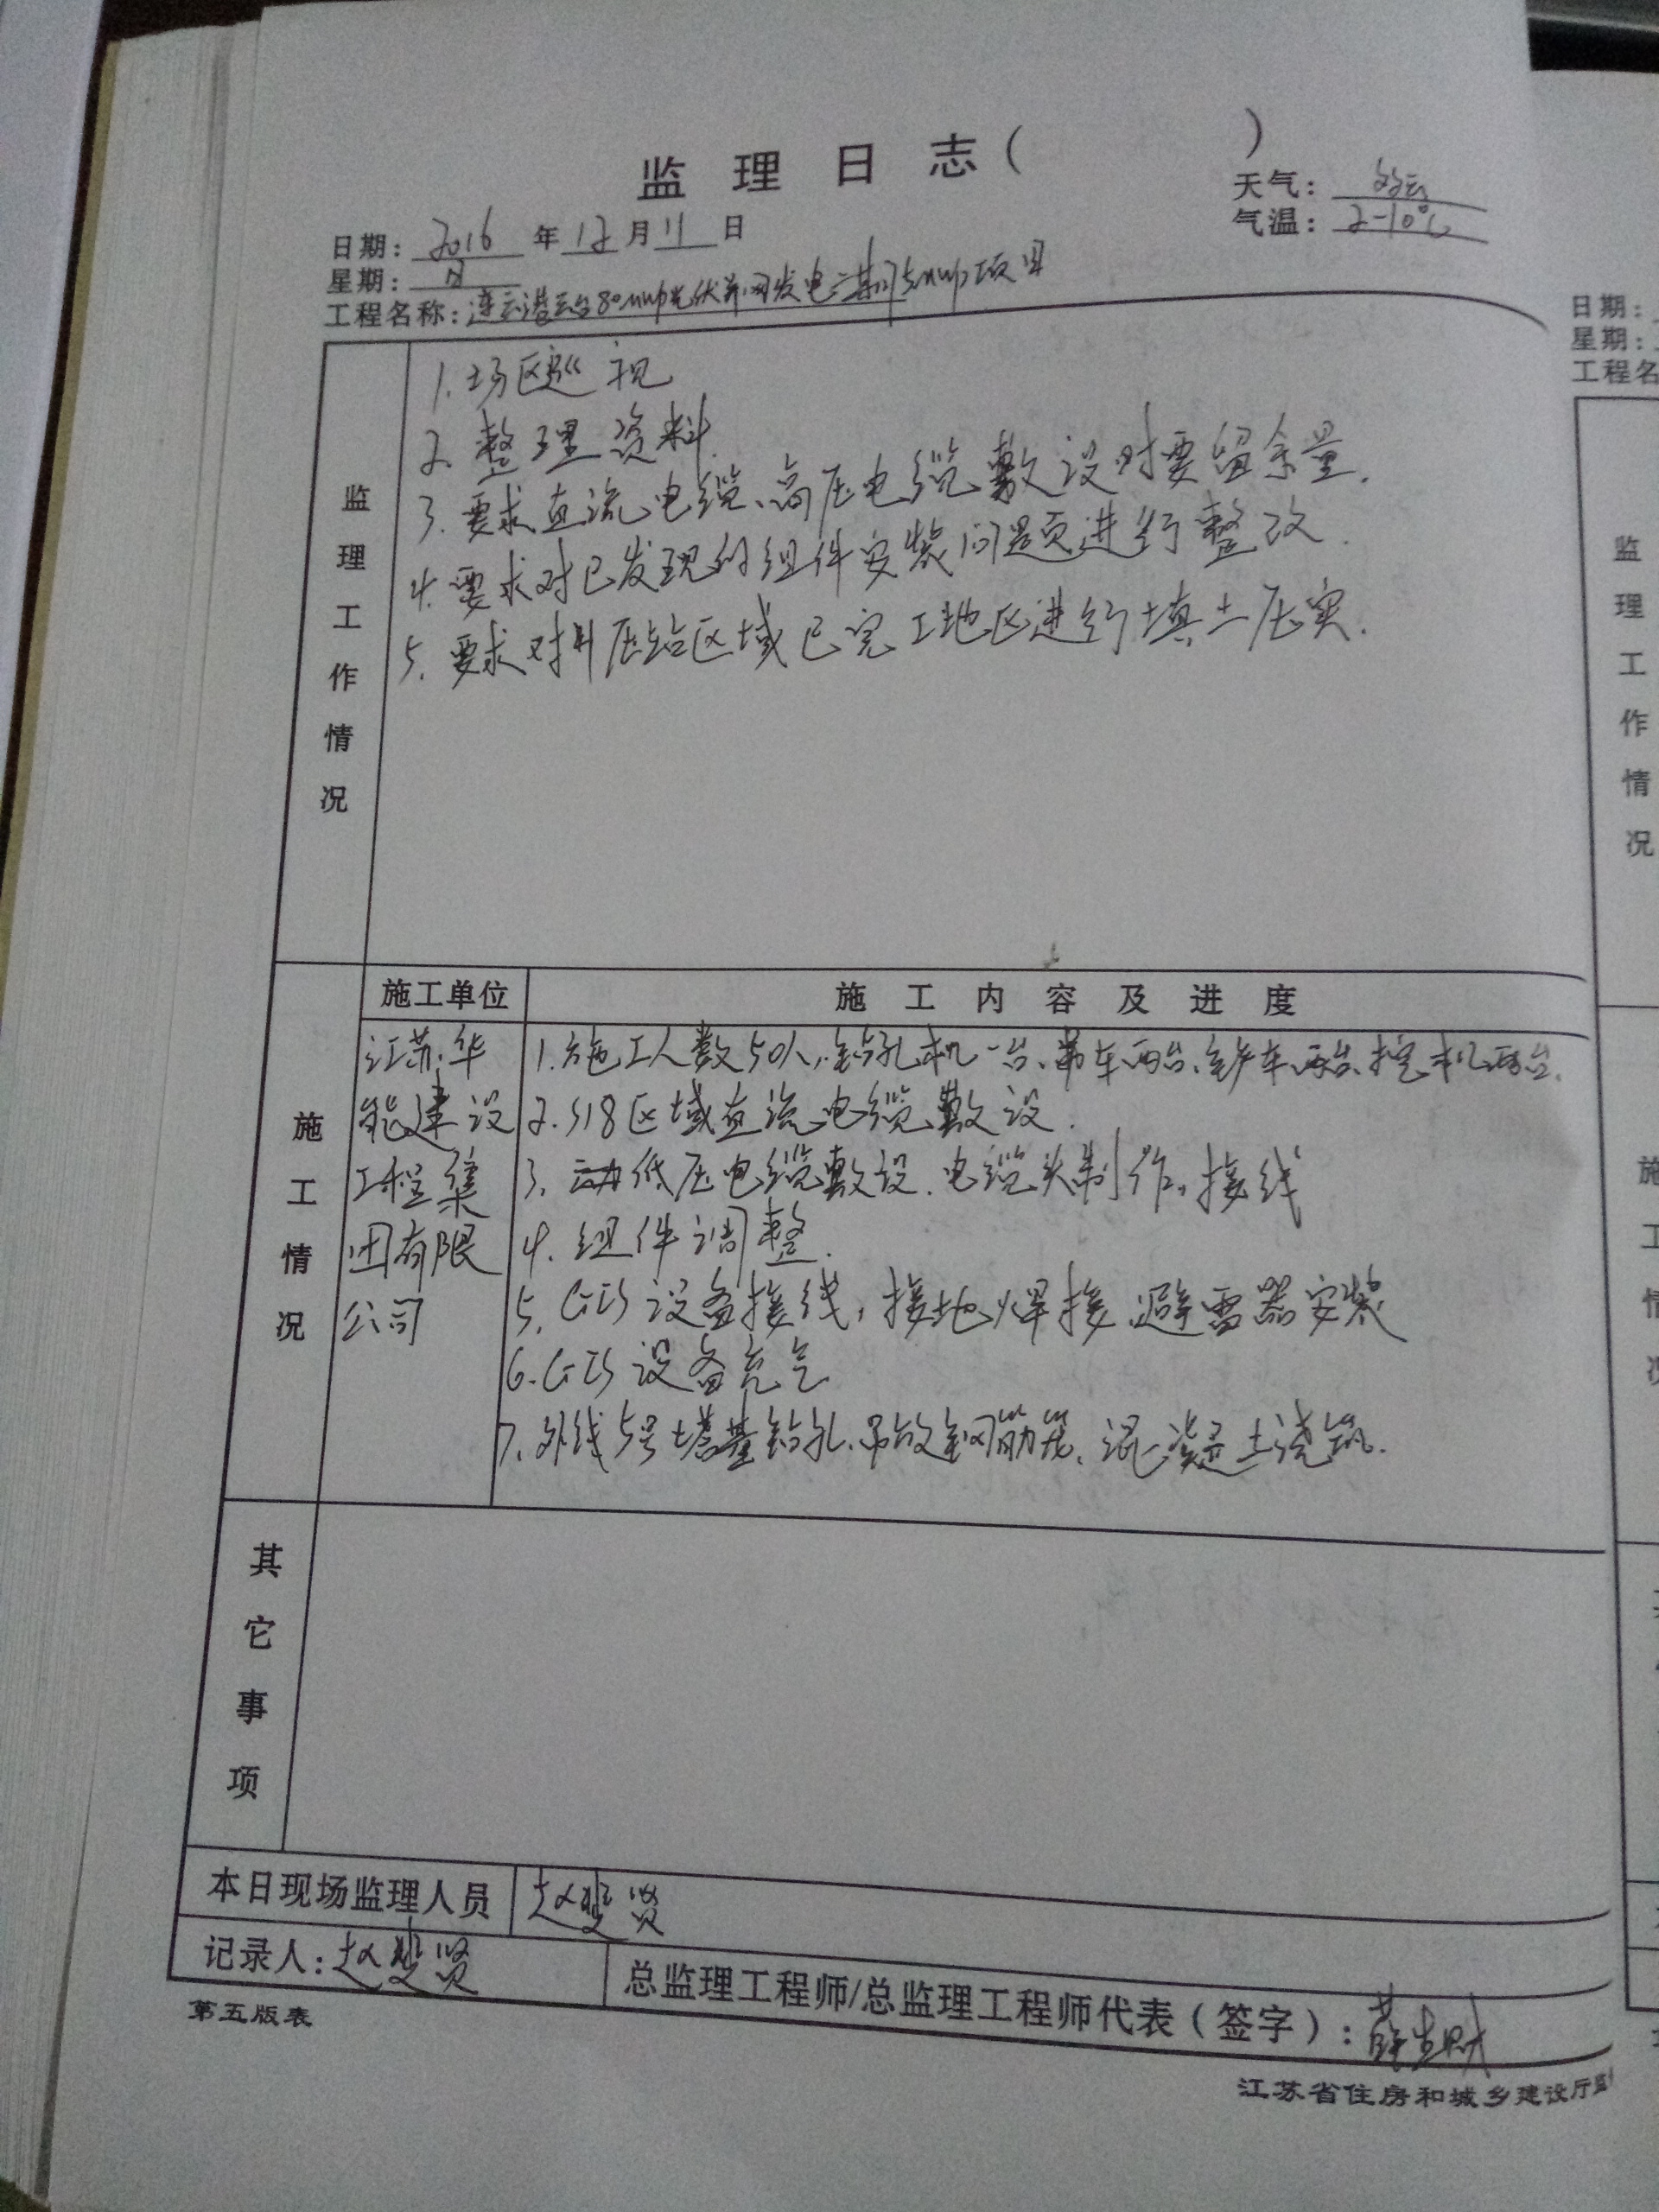 监理日志( )
天气: 多云
日期: 2016年12月11日
气温: 2-10℃
星期: 日
工程名称: 连云港云台80MWp光伏并网发电二期75MWp项目
监理工作情况
1.场区巡视
2.整理资料.
3.要求直流电缆、高压电缆敷设时要留余量.
4.要求对已发现的组件安装问题进行整改.
5.要求对升压站区域已完工地区进行填土压实.
施工单位 施工内容及进度
施工情况
江苏华
能建设
工程集
团有限
公司
1.施工人数50人,钻孔机一台、吊车两台、铲车两台、挖机两台.
2.S18区域直流电缆敷设.
3.低压电缆敷设.电缆头制作,接线
4.组件调整.
5.GIS设备接线,接地焊接.避雷器安装
6.GIS设备充气
7.外线5号塔基钻孔、吊放钢筋笼、混凝土浇筑.
其它事项
本日现场监理人员 赵 贤
记录人:赵 贤
总监理工程师/总监理工程师代表(签字): 薛 财
第五版表
江苏省住房和城乡建设厅监
日期:
星期:
工程名
监理工作情况